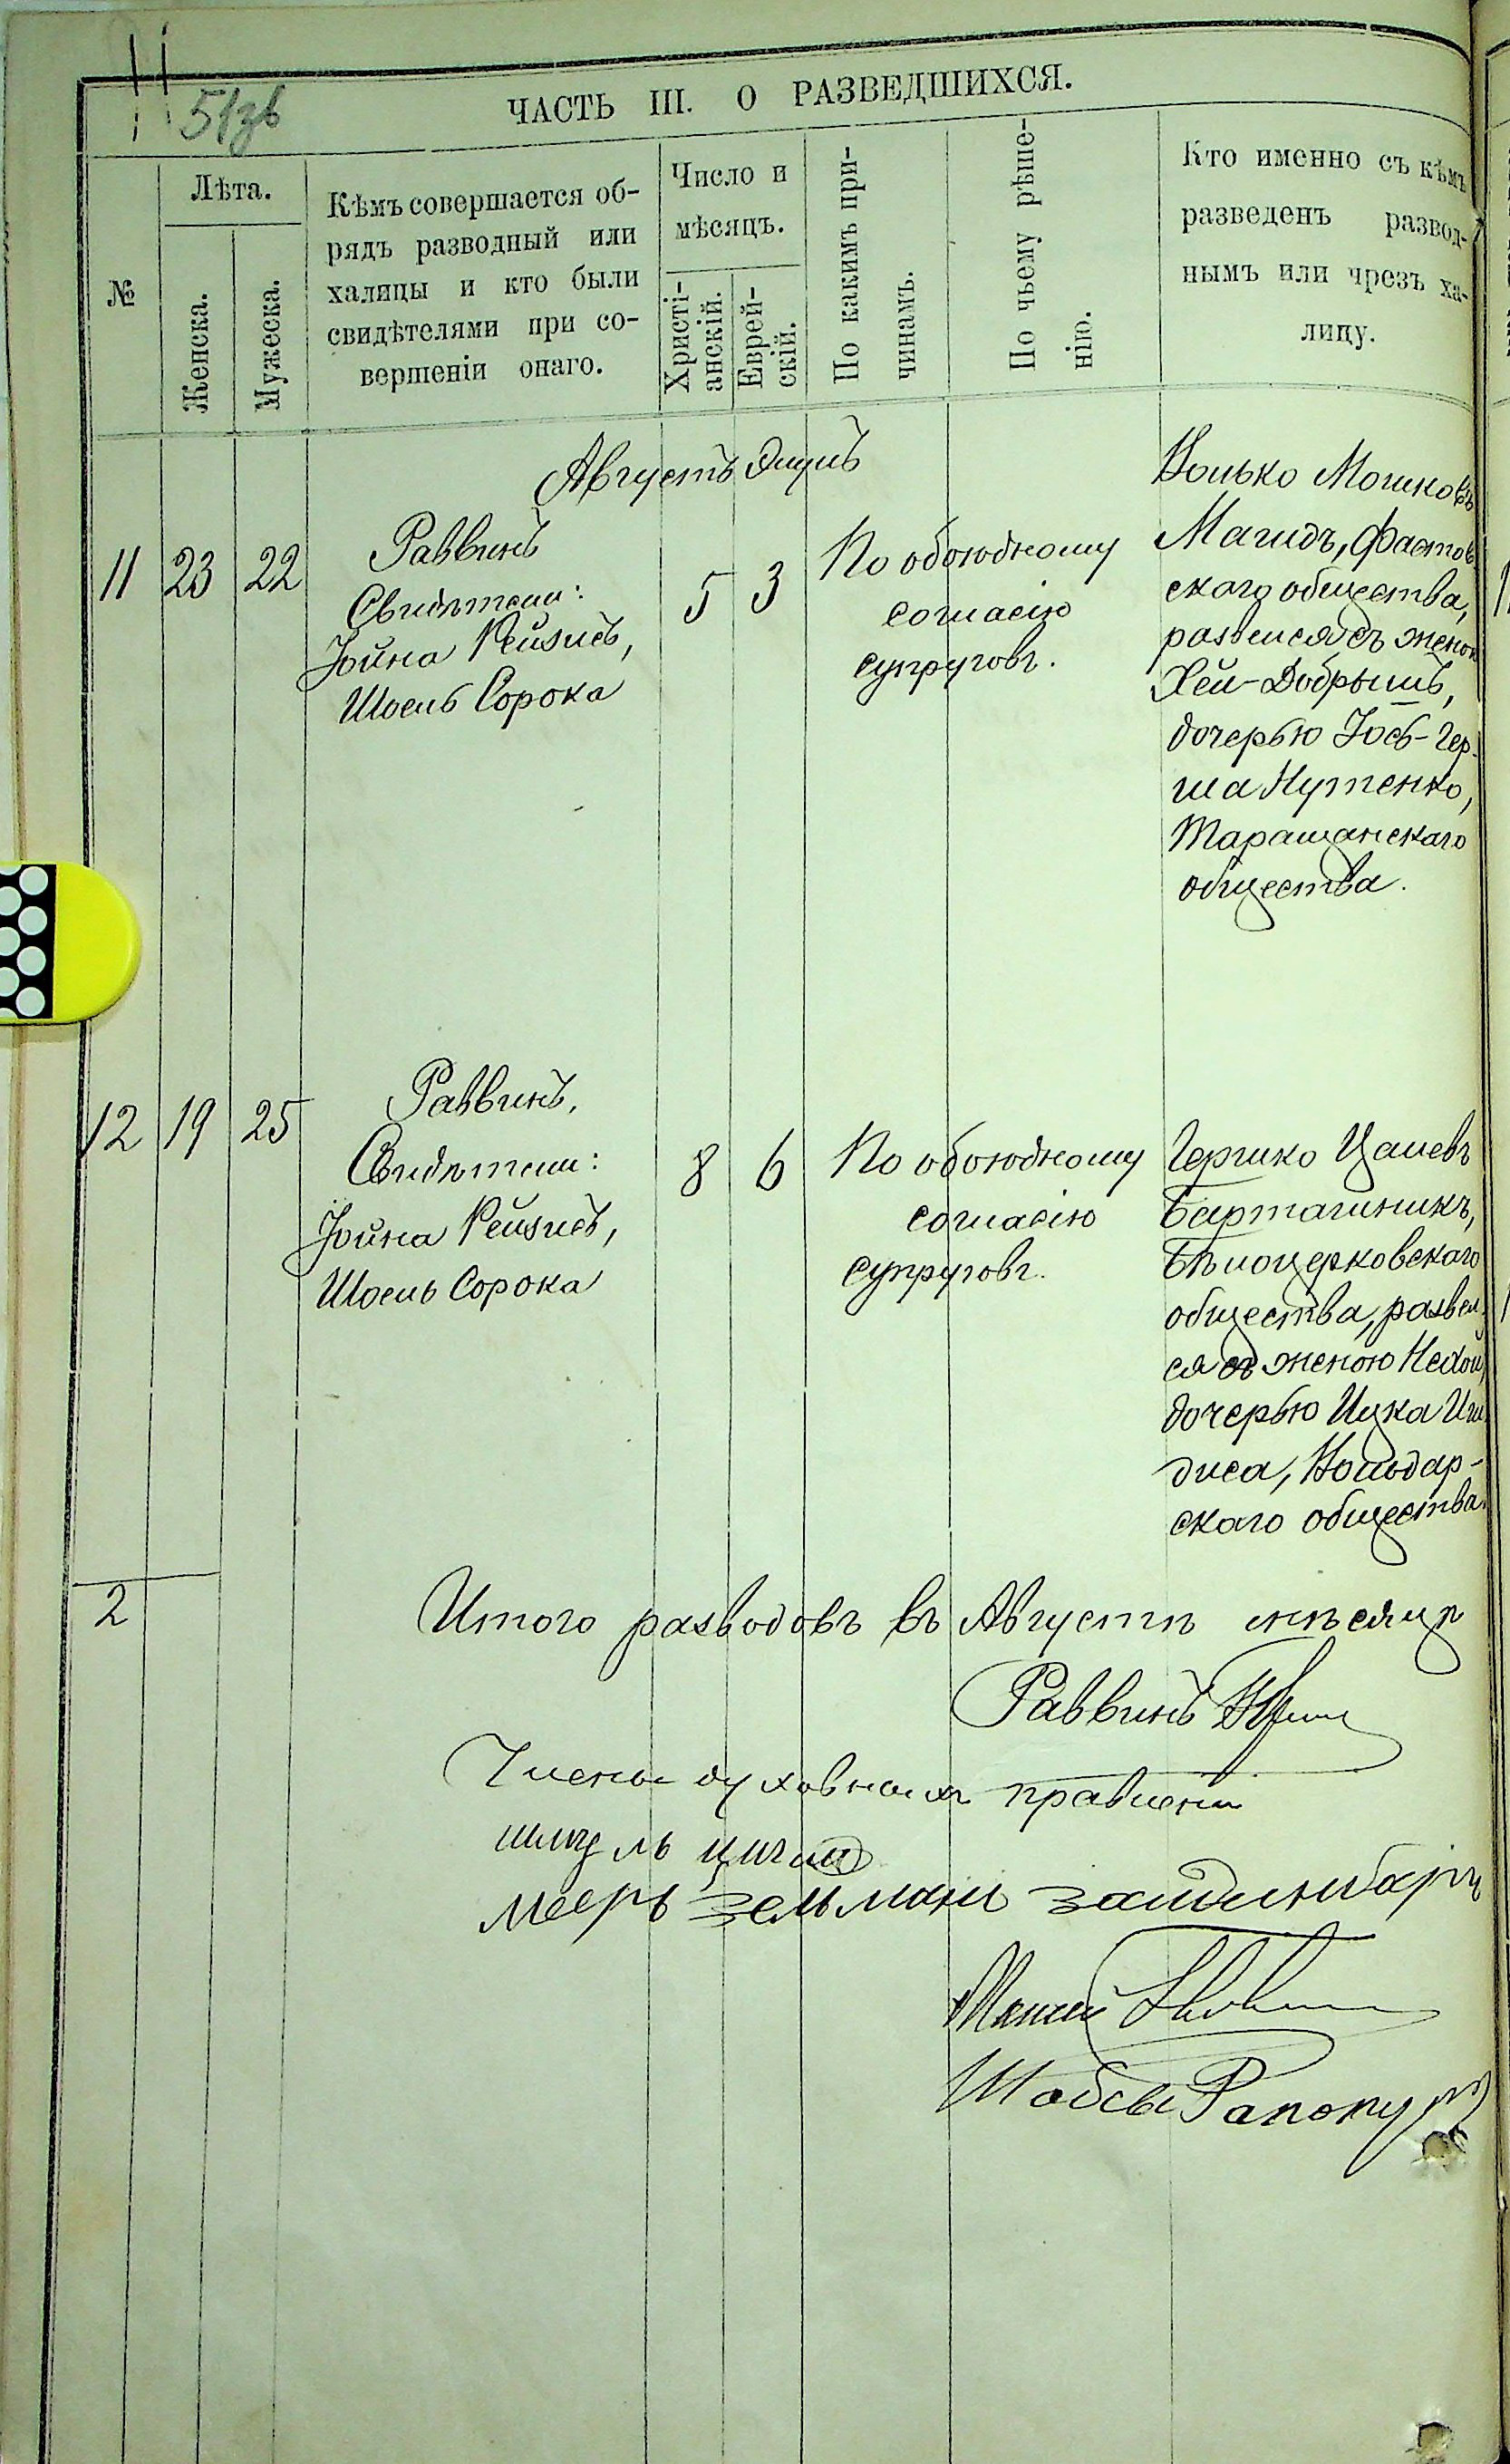 51зв
ЧАСТЬ III. О РАЗВЕДШИХСЯ.
№
Лѣта.
Женска.
Мужеска.
Кѣмъ совершается об-
рядъ разводный или
халицы и кто были
свидѣтелями при со-
вершеніи онаго.
Число и
мѣсяцъ.
Христі-
анскій.
Еврей-
скій.
По какимъ при-
чинамъ.
По чьему рѣше-
нію.
Кто именно съ кѣмъ
разведенъ развод-
нымъ или чрезъ ха-
лицу.
Августъ Элулъ
11 23 22
Раввинъ
Свидѣтели:
Іойна Рейзисъ,
Шоель Сорока
5 3
По обоюдному
согласію
супруговъ.
Волько Мошковъ
Магидъ, Фастов
скаго общества,
развелся съ женой
Хей-Добрышъ,
дочерью Іось-Гер-
ша Нутенко,
Таращанскаго
общества.
12 19 25
Раввинъ.
Свидѣтели:
Іойна Рейзисъ,
Шоель Сорока
8 6
По обоюдному
согласію
супруговъ.
Гершко Цалевъ
Барташникъ,
Бѣлоцерковскаго
общества, развел-
ся съ женою Нехой,
дочерью Ицка
диса,
скаго общества.
2
Итого разводовъ въ Августѣ мѣсяцѣ
Раввинъ
Члены духовныхъ правленій
меерь зельмань зайдинбаръ
Шабсы Рапопу